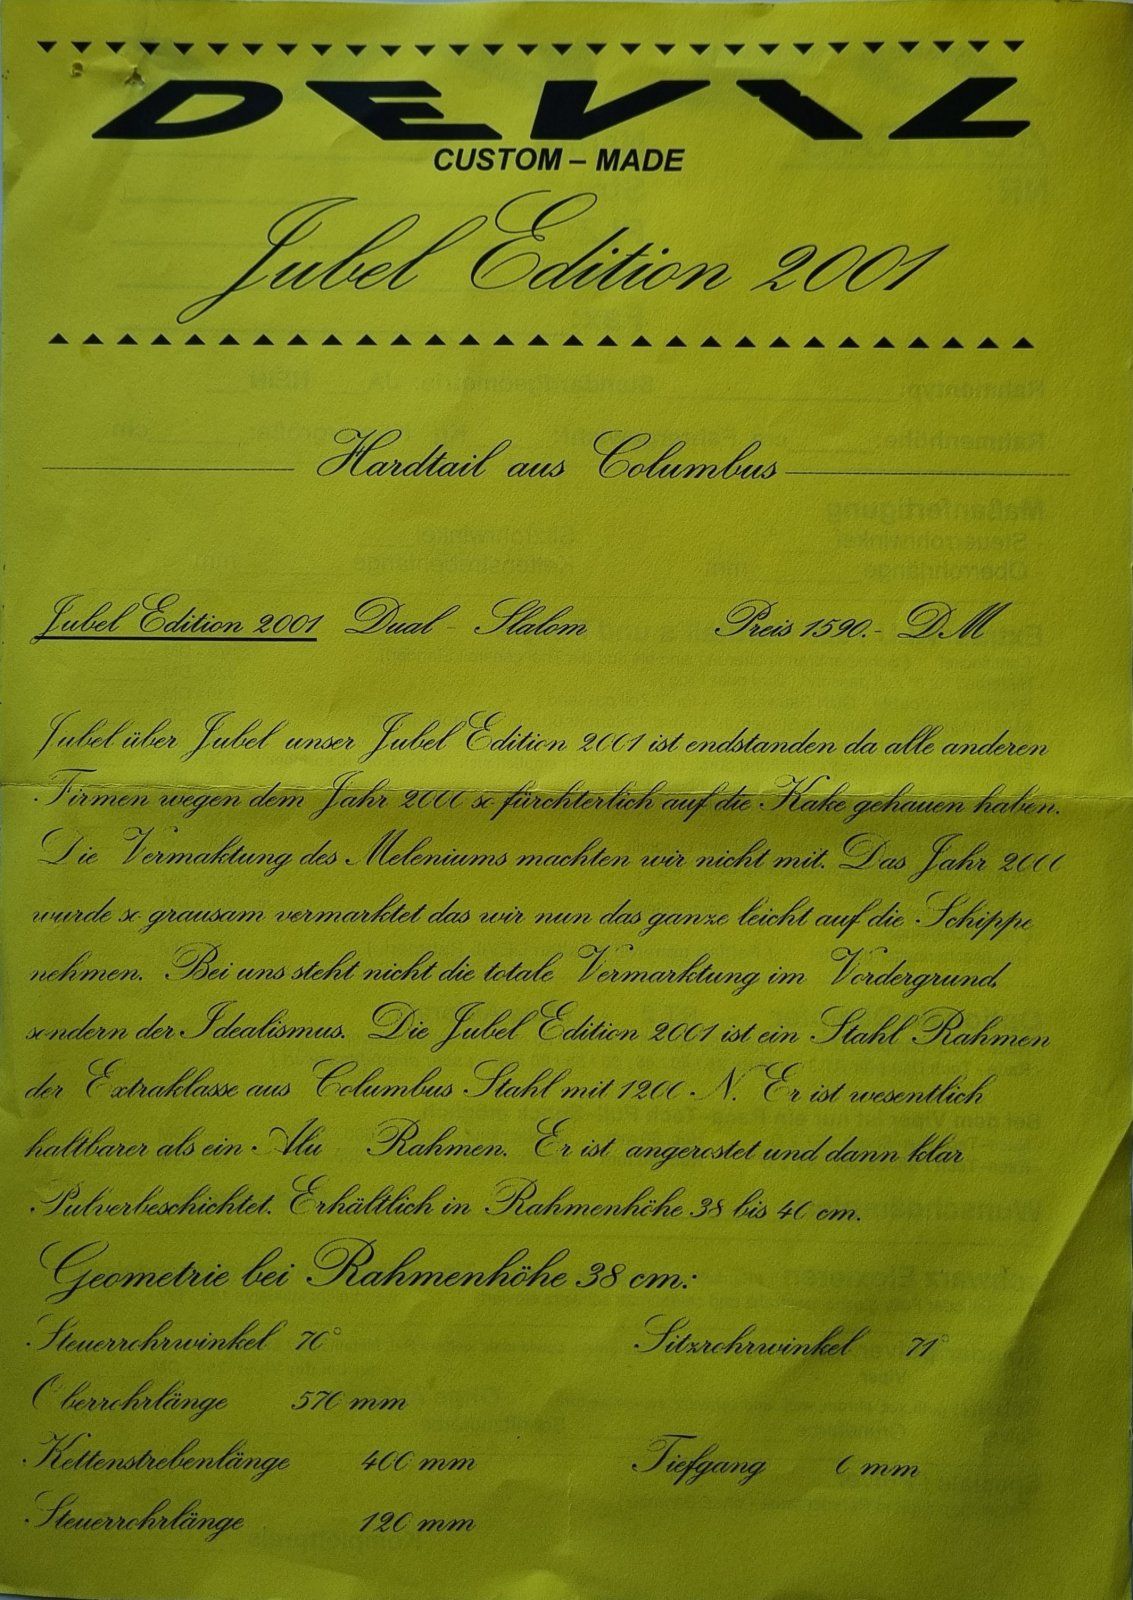 DEVIL
CUSTOM – MADE
Jubel Edition 2001
Hardtail aus Columbus
Jubel Edition 2001 Dual - Slalom Preis 1590.- DM
Jubel über Jubel unser Jubel Edition 2001 ist endstanden da alle anderen
Firmen wegen dem Jahr 2000 so fürchterlich auf die Kake gehauen haben.
Die Vermaktung des Meleniums machten wir nicht mit. Das Jahr 2000
wurde so grausam vermarktet das wir nun das ganze leicht auf die Schippe
nehmen. Bei uns steht nicht die totale Vermarktung im Vordergrund,
sondern der Idealismus. Die Jubel Edition 2001 ist ein Stahl Rahmen
der Extraklasse aus Columbus Stahl mit 1200 N. Er ist wesentlich
haltbarer als ein Alu Rahmen. Er ist angerostet und dann klar
Pulverbeschichtet. Erhältlich in Rahmenhöhe 38 bis 40 cm.
Geometrie bei Rahmenhöhe 38 cm:
Steuerrohrwinkel 70° Sitzrohrwinkel 71°
Oberrohrlänge 570 mm
Kettenstrebenlänge 400 mm Tiefgang 0 mm
Steuerrohrlänge 120 mm